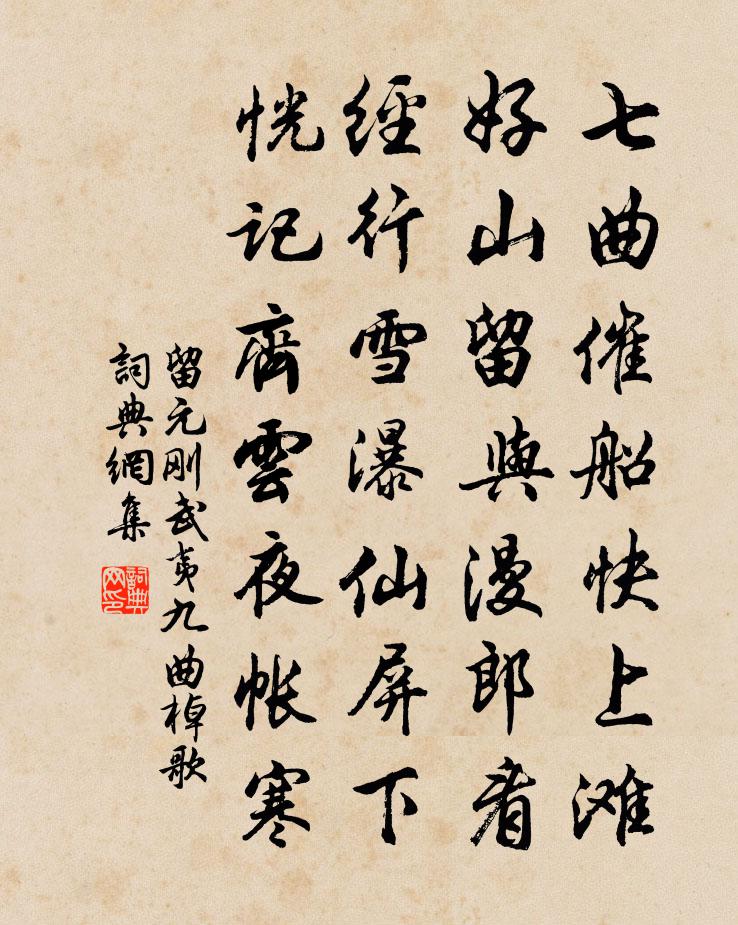 七曲催船快上滩
好山留與漫郎看
經行雪瀑仙屏下
恍記齊雲夜帳寒
留元刚武夷九曲棹歌
詞典網集
詞典網印